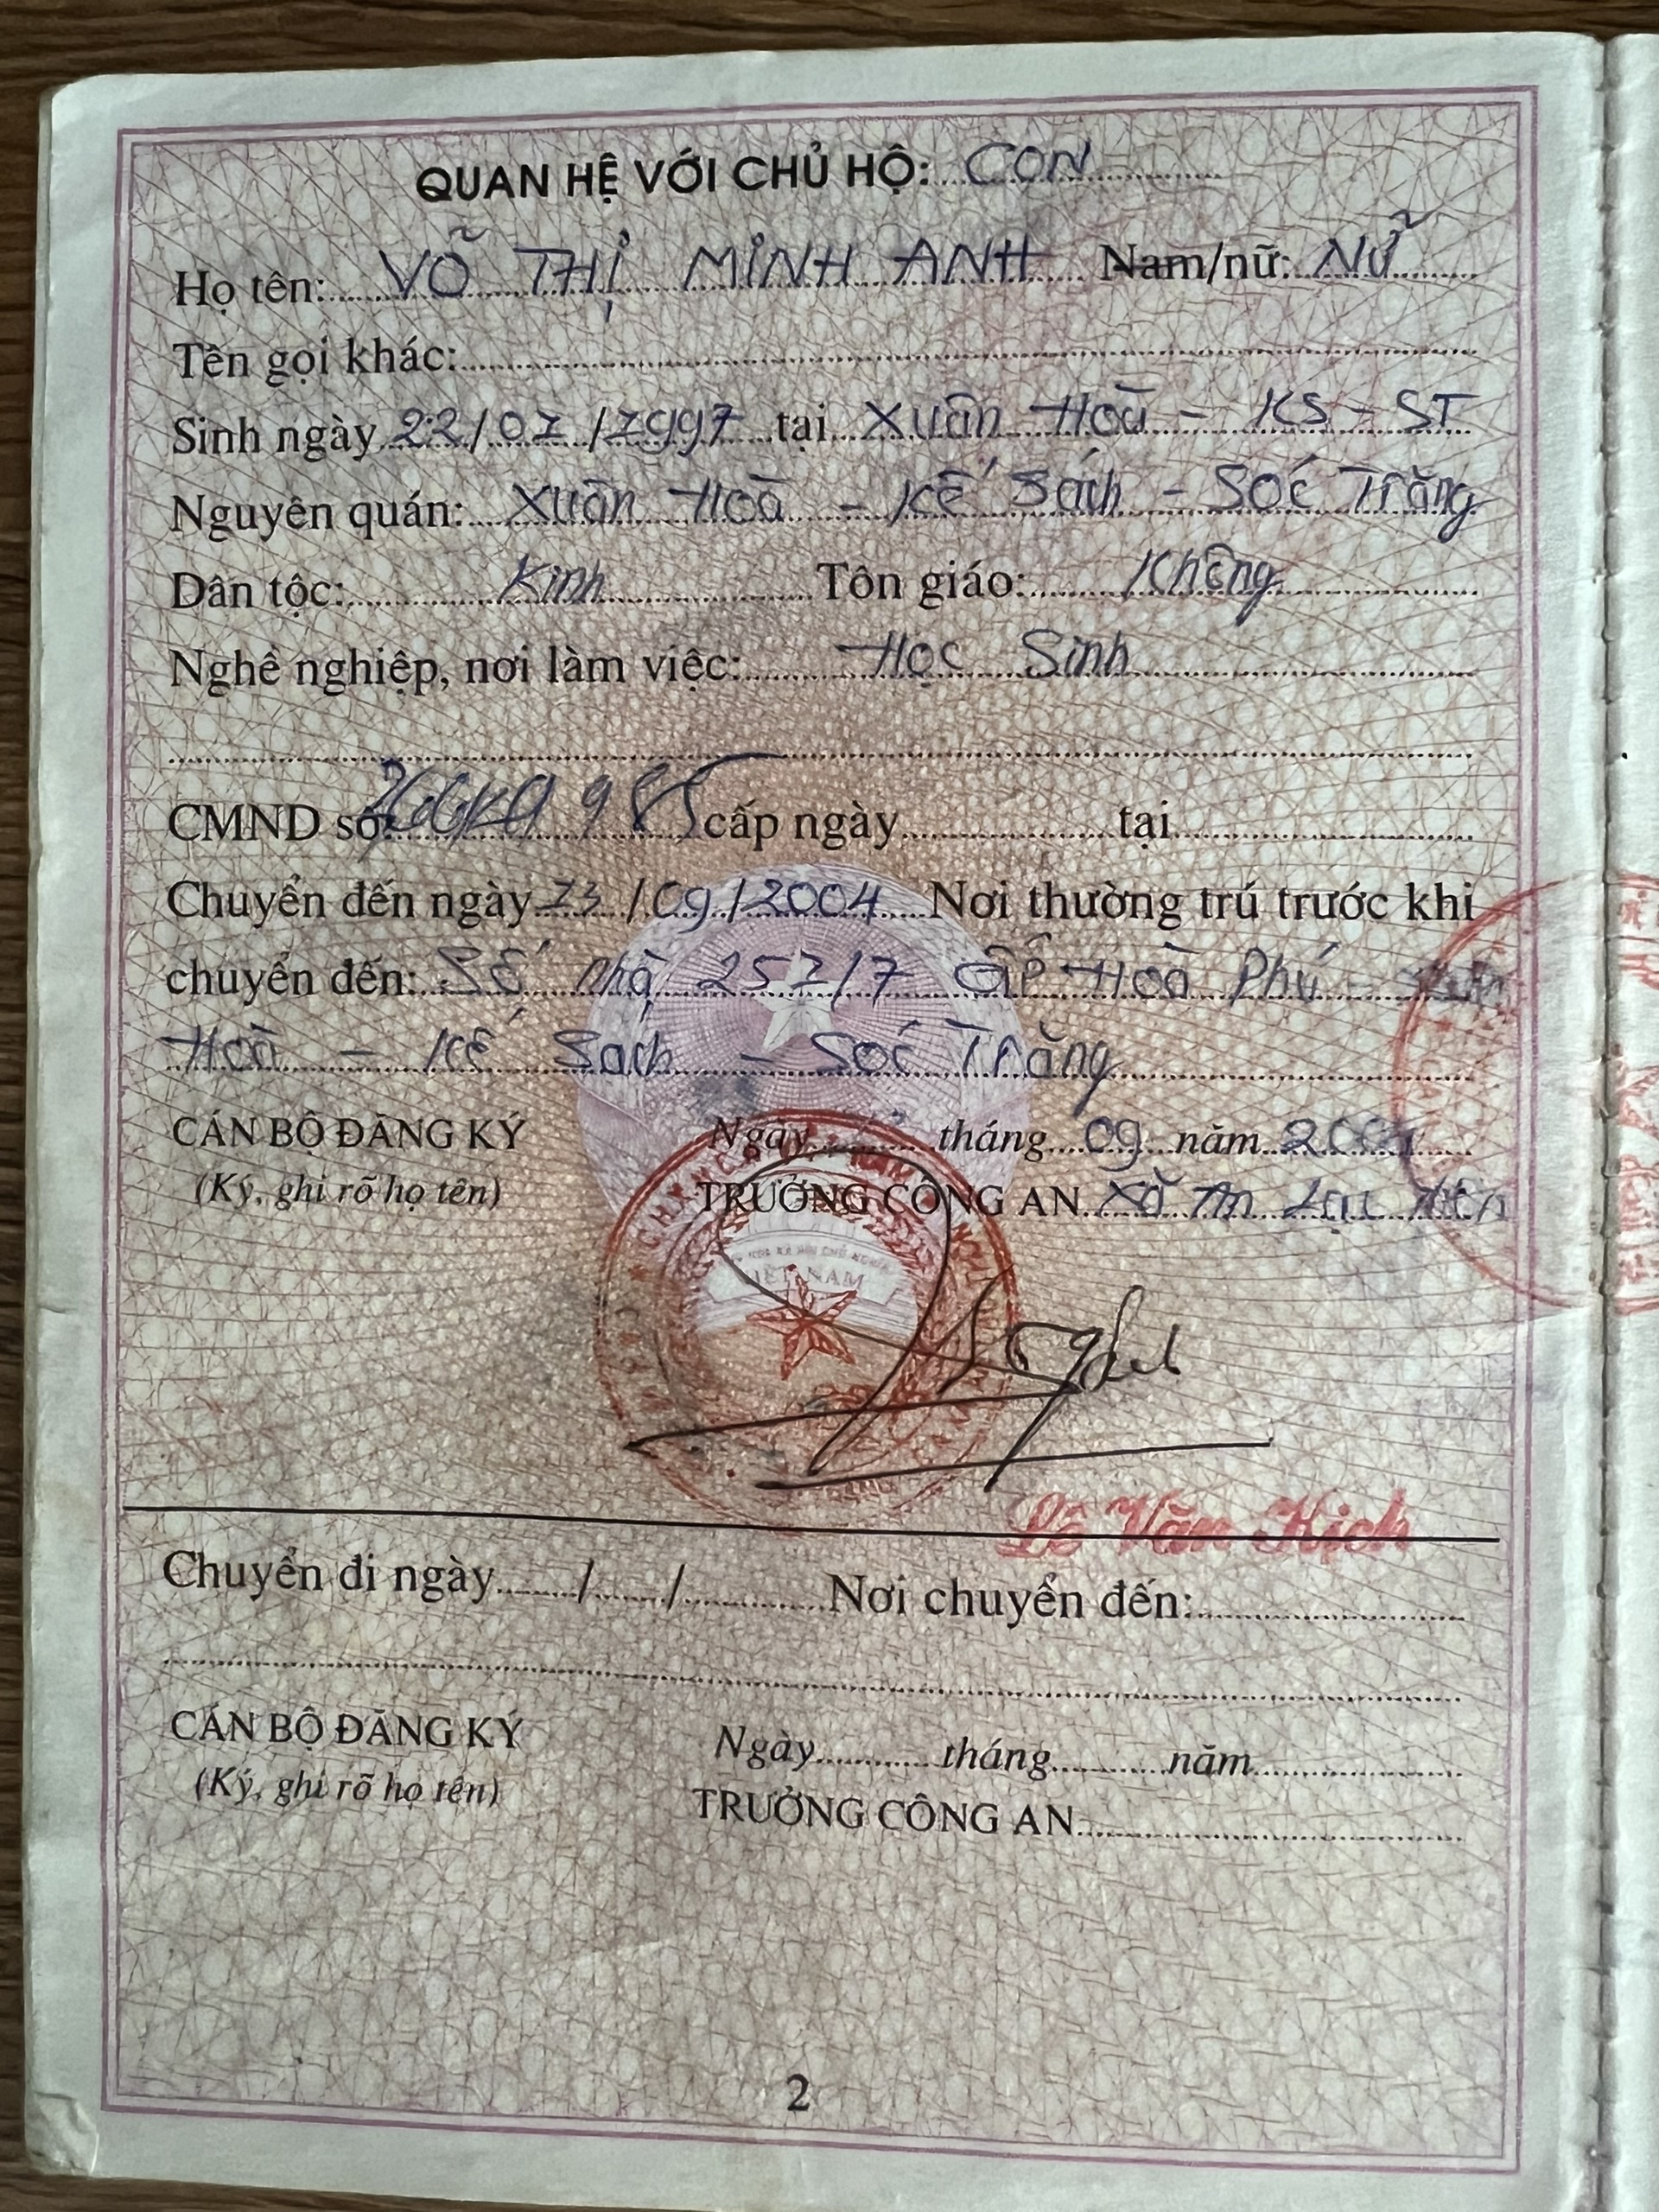 QUAN HỆ VỚI CHỦ HỘ: CON
Họ tên: VÕ THỊ MINH ANH Nam/nữ: NỮ
Tên gọi khác:
Sinh ngày 22/01/1997 tại Xuân Hoà - KS - ST
Nguyên quán: Xuân Hoà - Kế Sách - Sóc Trăng
Dân tộc: Kinh Tôn giáo: Không
Nghề nghiệp, nơi làm việc: Học Sinh
CMND số: cấp ngày tại
Chuyển đến ngày 13/09/2004 Nơi thường trú trước khi
chuyển đến: Số nhà 251/7 ấp Hoà Phú -
Hoà - Kế Sach - Sóc Trăng
CÁN BỘ ĐĂNG KÝ Ngày tháng 09 năm
(Ký, ghi rõ họ tên) TRƯỞNG CÔNG AN Xã An Lạc
VIỆT NAM
Lê Văn Kịch
Chuyển đi ngày / / Nơi chuyển đến:
CÁN BỘ ĐĂNG KÝ Ngày tháng năm
(Ký, ghi rõ họ tên) TRƯỞNG CÔNG AN
2